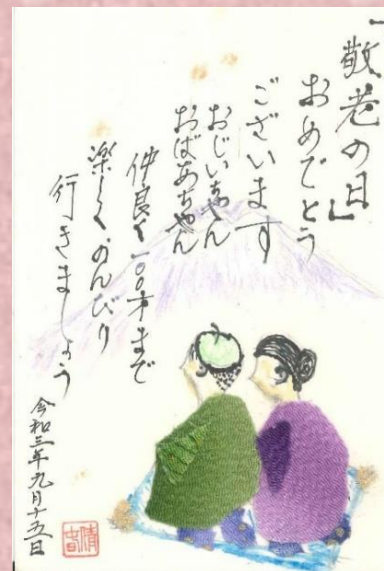 「敬老の日」
おめでとう
ございます
おじいちゃん
おばあちゃん
仲良く一〇〇才まで
楽しく、のんびり
行きましょう
令和三年九月十五日